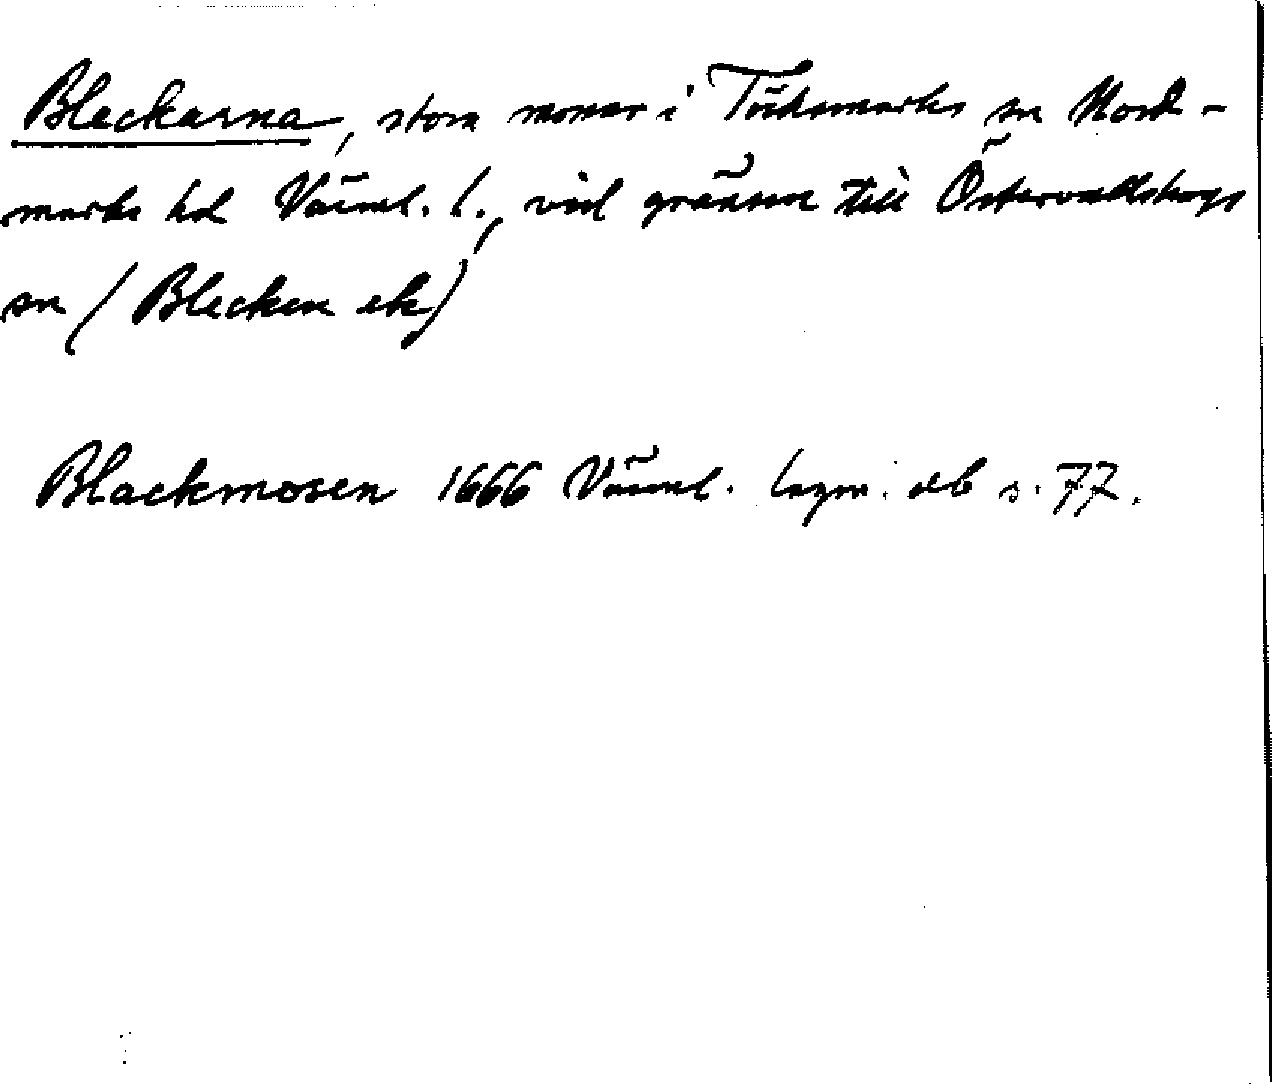 Bleckarna, stora mossar i Töcksmarks sn Nord-
marks hd Värml. l., vid gränsen till Östervallskogs
sn (Blecken ek)
Blackmosen 1666 Värml. lszm. db s. 77.